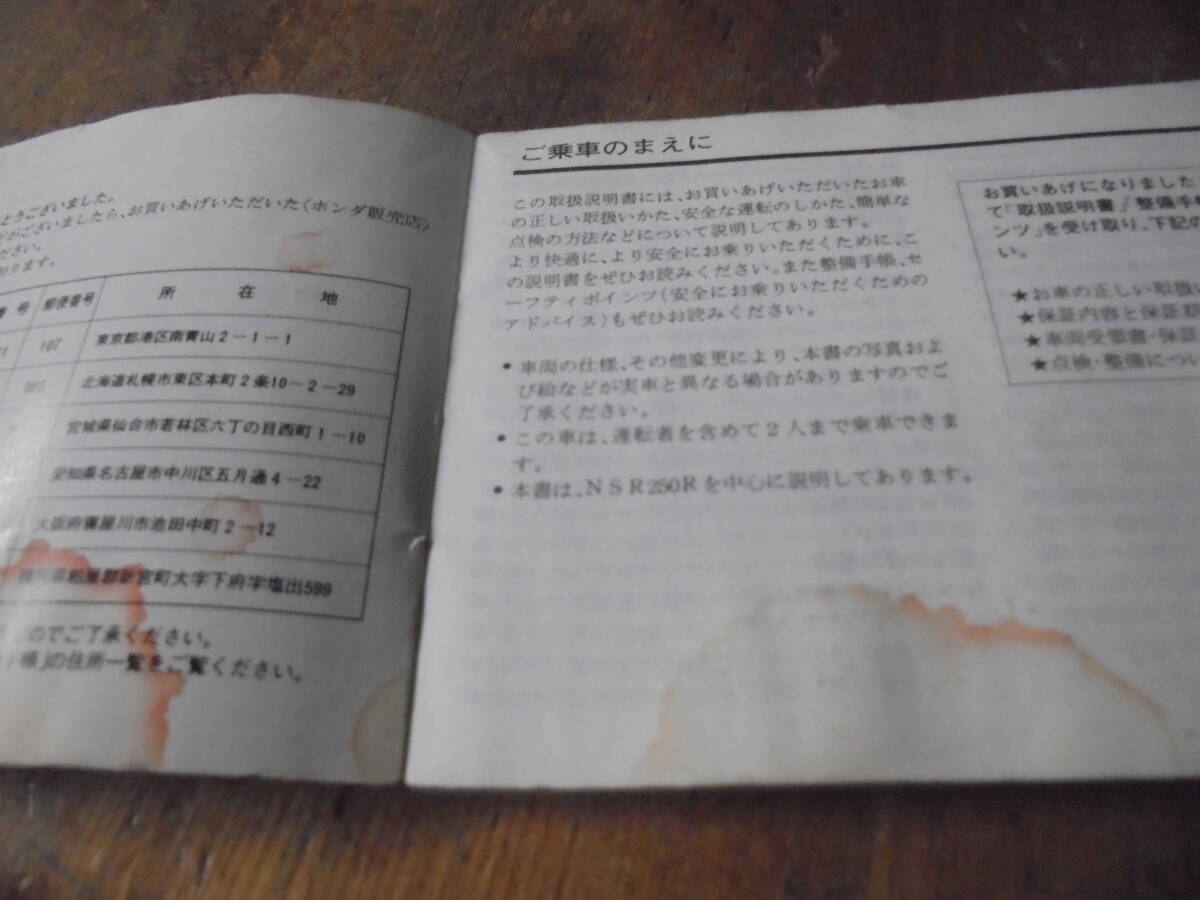 とうございました。
がございましたら、お買いあげいただいた〈ホンダ販売店〉
ださい。
おります。
番号 郵便番号 所在地
107 東京都港区南青山2-1-1
065 北海道札幌市東区本町2条10-2-29
宮城県仙台市若林区六丁の目西町1-10
愛知県名古屋市中川区五月通4-22
大阪府寝屋川市池田中町2-12
福岡県粕屋郡新宮町大字下府字塩出599
のでご了承ください。
帳」の住所一覧をご覧ください。
ご乗車のまえに
この取扱説明書には、お買いあげいただいたお車
の正しい取扱いかた、安全な運転のしかた、簡単な
点検の方法などについて説明してあります。
より快適に、より安全にお乗りいただくために、こ
の説明書をぜひお読みください。また整備手帳、セ
ーフティポインツ(安全にお乗りいただくための
アドバイス)もぜひお読みください。
• 車両の仕様、その他変更により、本書の写真およ
び絵などが実車と異なる場合がありますのでご
了承ください。
• この車は、運転者を含めて2人まで乗車できま
す。
• 本書は、NSR250Rを中心に説明してあります。
お買いあげになりました
て「取扱説明書」「整備手帳
ンツ」を受け取り、下記の
い。
★お車の正しい取扱い
★保証内容と保証期
★車両受領書・保証
★点検・整備につい